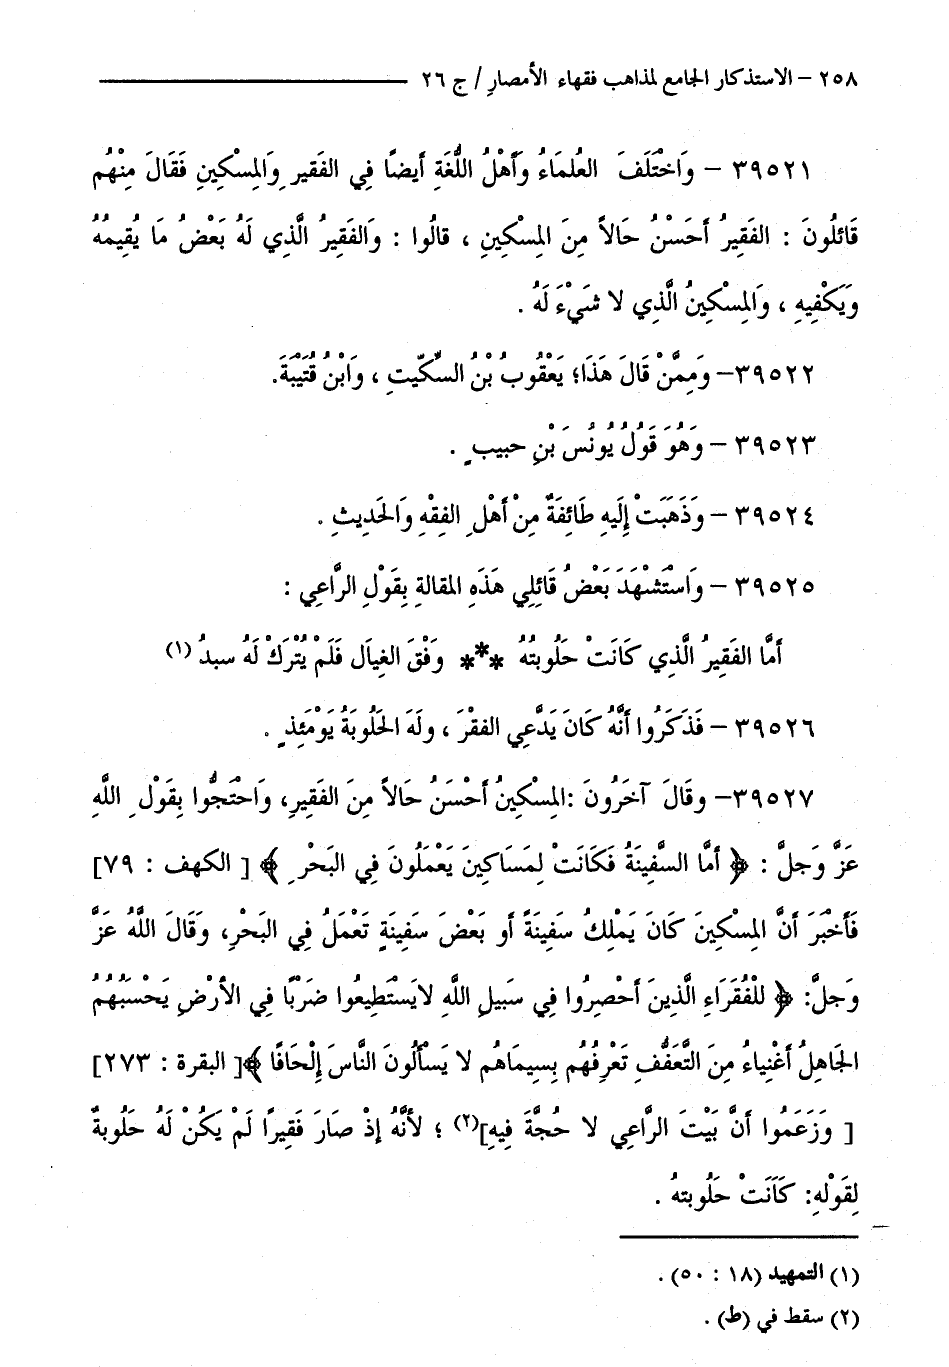 ٢٥٨ – الاستذكار الجامع لمذاهب فقهاء الأمصارِ / ج ٢٦
٣٩٥٢١ – وَاخْتَلَفَ العُلمَاءُ وَأَهْلُ اللُّغَةِ أَيضًا فِي الفَقيرِ وَالمِسْكِينِ فَقَالَ مِنْهُم
قَائِلُونَ : الفَقِيرُ أَحَسْنُ حَالاً مِنَ المِسْكِينِ ، قالُوا : وَالفَقِيرُ الَّذِي لَهُ بَعْضُ مَا يُقِيمُهُ
وَيَكْفِيهِ ، وَالمِسْكِينُ الَّذِي لا شَيْءَ لَهُ .
٣٩٥٢٢– وَمِمَّنْ قَالَ هَذَا؛ يَعْقُوبُ بْنُ السِّكِّيتِ ، وَابْنُ قُتَيْبَةَ.
٣٩٥٢٣ – وَهُوَ قَوْلُ يُونُسَ بْنِ حبيبٍ .
٣٩٥٢٤ – وَذَهَبَتْ إِلَيهِ طَائِفَةٌ مِنْ أَهْلِ الفِقْهِ وَالحَدِيثِ .
٣٩٥٢٥ – وَاسْتَشْهَدَ بَعْضُ قَائِلِي هَذَهِ المقالةِ بِقَوْلِ الرَّاعِي :
أَمَّا الفَقِيرُ الَّذِي كَانَتْ حَلُوبتُهُ *** وَفْقَ العِيَالِ فَلَمْ يُتْرَكْ لَهُ سبدُ (١)
٣٩٥٢٦ – فَذَكَرُوا أَنَّهُ كَانَ يَدَّعِي الفقْرَ ، ولَهَ الحَلُوبَةُ يَوْمَئِذٍ .
٣٩٥٢٧– وقَالَ آخَرُونَ :المِسْكِينُ أَحْسَنُ حَالاً مِنَ الفَقِيرِ، وَاحْتَجُّوا بِقَوْلِ اللَّهِ
عَزَّ وَجلَّ : ﴿ أَمَّا السَّفِينَةُ فَكَانَتْ لِمَسَاكِينَ يَعْمَلُونَ فِي البَحْرِ ﴾ [ الكهف : ٧٩]
فَأَخْبَرَ أَنَّ المِسْكِينَ كَانَ يَمْلِكُ سَفِينَةً أو بَعْضَ سَفِينَةٍ تَعْمَلُ فِي البَحْرِ، وَقَالَ اللَّهُ عَزَّ
وَجلَّ: ﴿ للْفُقَرَاءِ الَّذِينَ أُحْصِرُوا فِي سَبِيلِ اللَّهِ لايَسْتَطِيعُوا ضَرْبًا فِي الأرْضِ يَحْسَبُهُمُ
الجَاهِلُ أَغْنِياءُ مِنَ التَّعَفُّفِ تَعْرِفُهُم بِسِيمَاهُم لا يَسْأَلُونَ النَّاسَ إِلْحَافًا ﴾[ البقرة : ٢٧٣]
[ وَزَعَمُوا أَنَّ بَيْتَ الرَّاعِي لا حُجَّةَ فِيهِ](٢) ؛ لأنَّهُ إِذْ صَارَ فَقِيرًا لَمْ يَكُنْ لَهُ حَلُوبَةٌ
لِقَوْلِهِ: كَانَتْ حَلُوبتهُ .
(١) التمهيد (١٨ : ٥٠) .
(٢) سقط في (ط) .